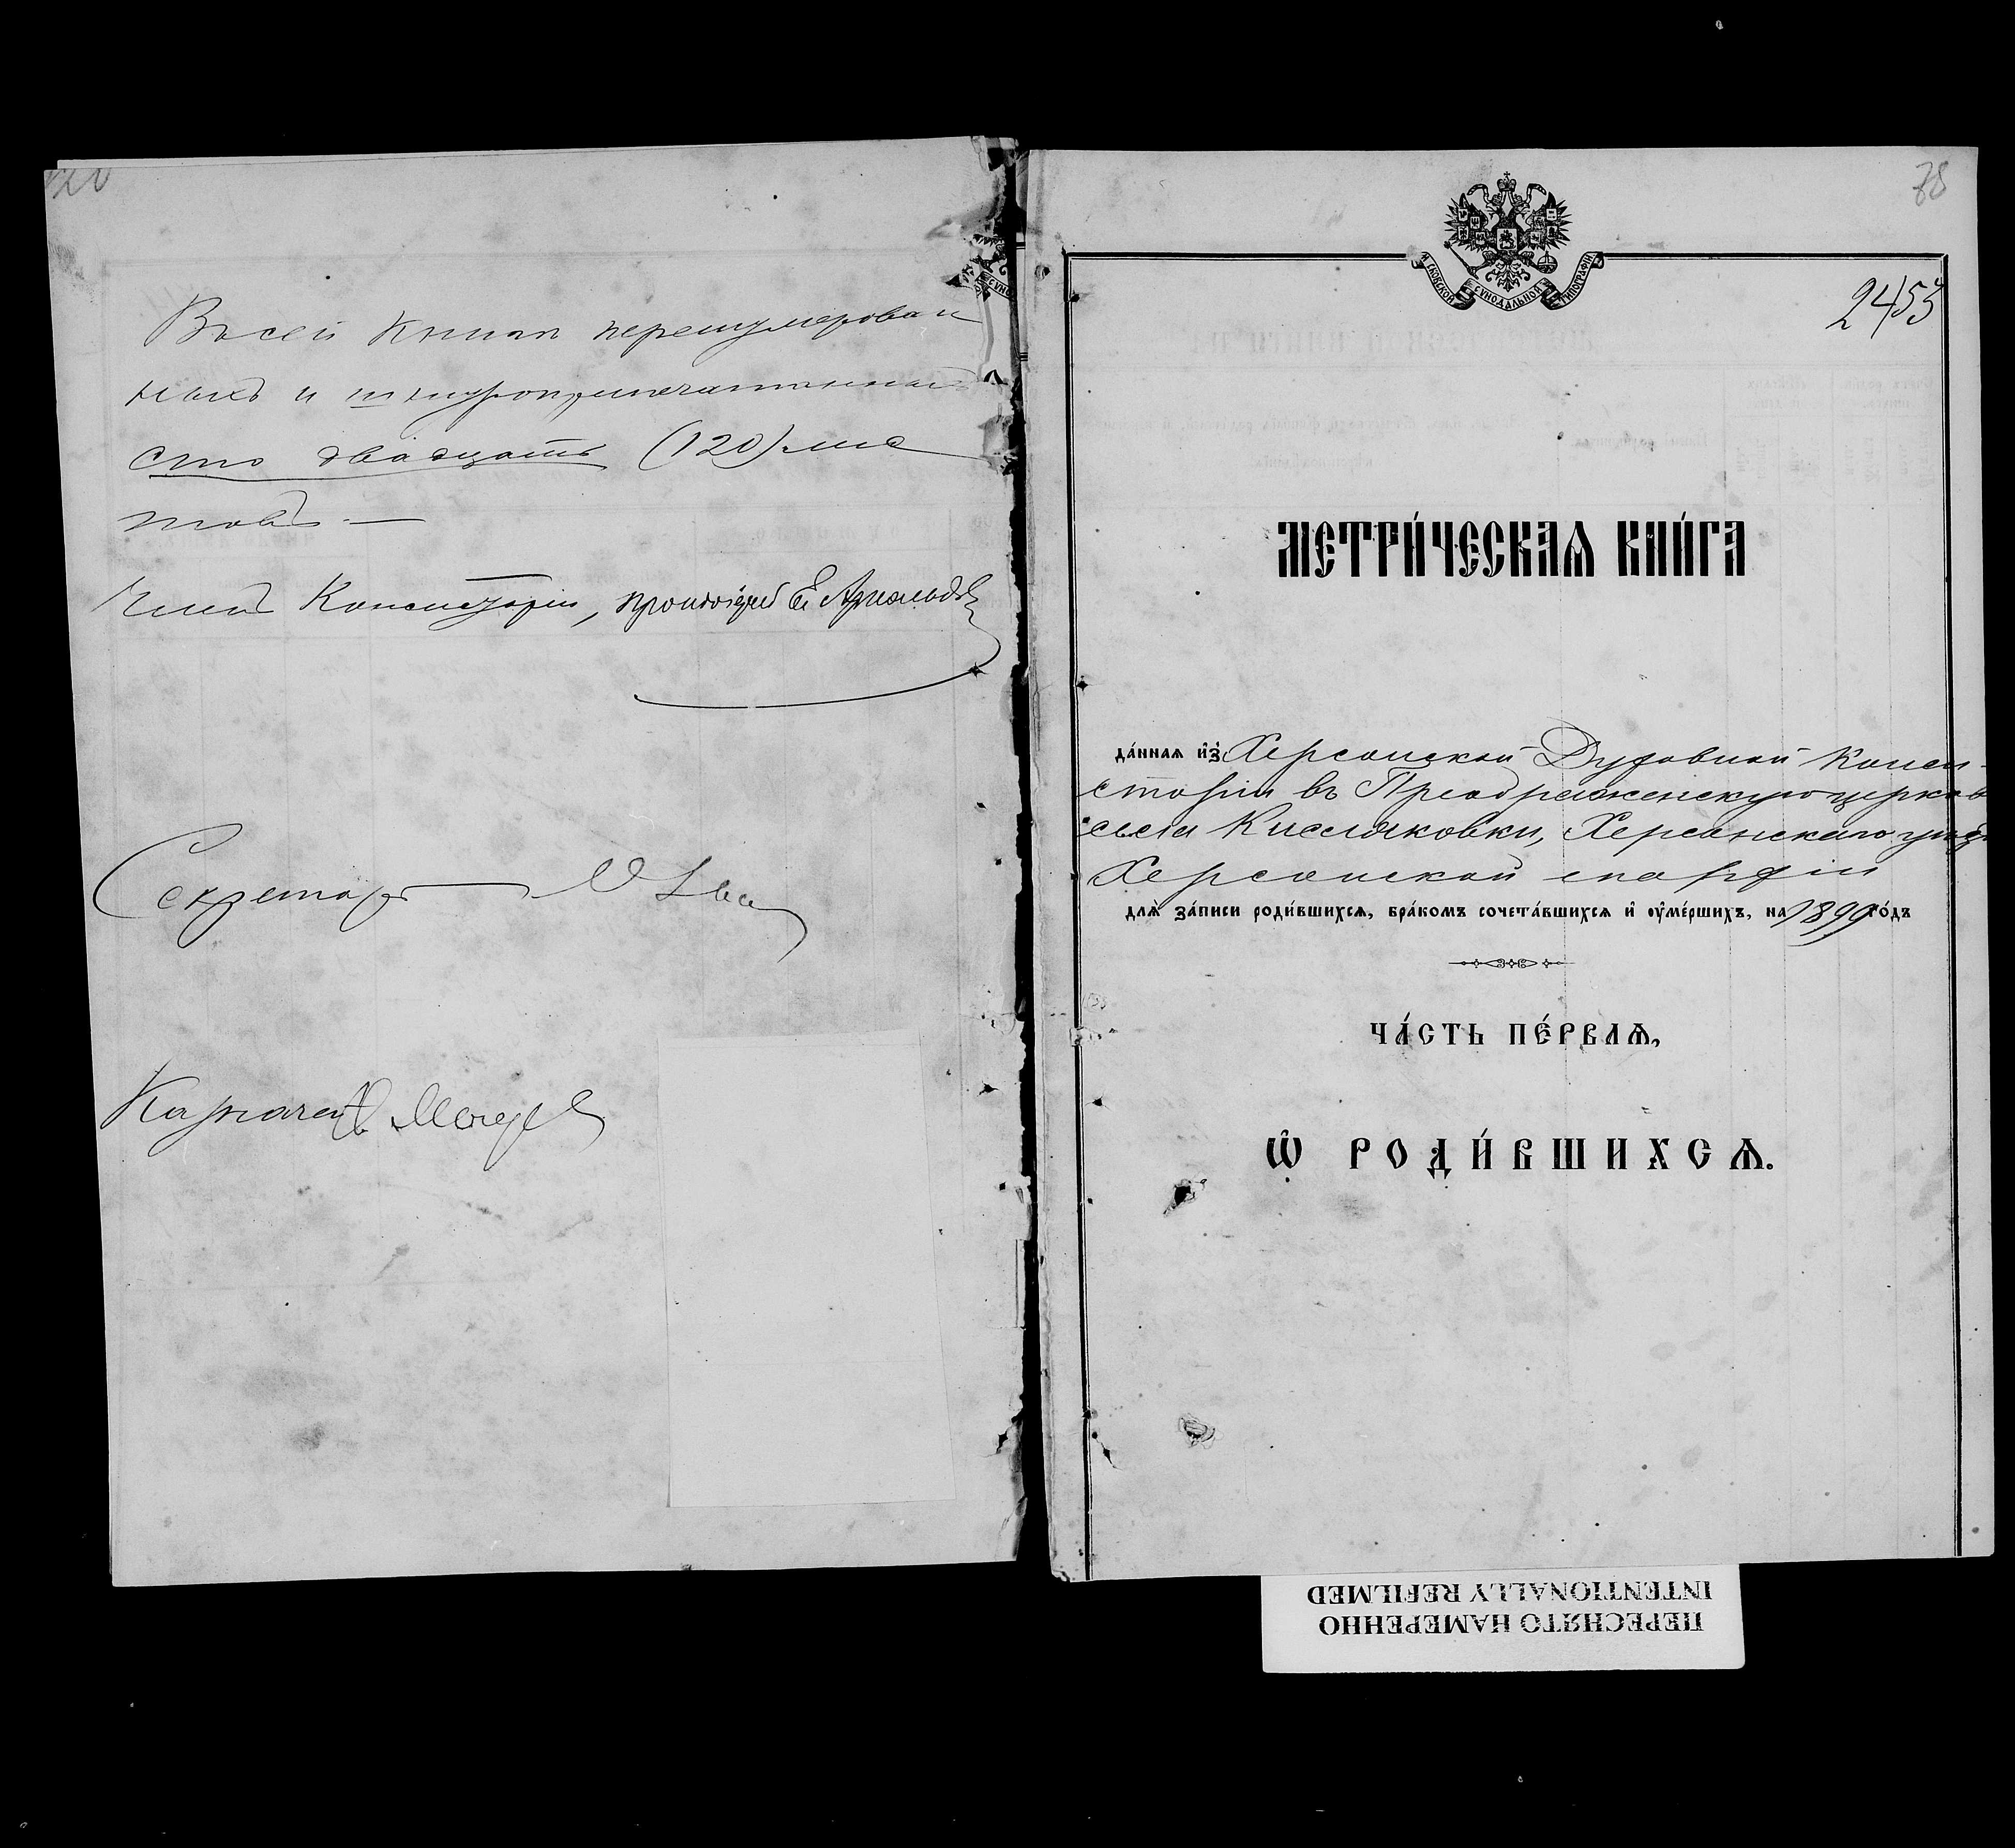 120
Въ сей книгѣ перенумерован
ныхъ и шнуроприпечатанныхъ
сто двадцать (120) лис
товъ. —
Членъ Консисторіи, протоіерей
Секретарь
Казначей
78
МОСКОВСКОЙ СѴНОДАЛЬНОЙ ТИПОГРАФІИ
2453
МЕТРИ́ЧЕСКАѦ КНИ́ГА
да́ннаѧ и҆з̾ Херсонской Духовной Конси-
сторіи въ Преображенскую церковь
села Кисляковки, Херсонскаго уѣзда
Херсонской епархіи
длѧ̀ за́писи роди́вшихсѧ, бра́комъ сочета́вшихсѧ и҆ ᲂу҆ме́ршихъ, на 1899 го́дъ
ЧА́СТЬ ПЕ́РВАѦ,
Ѽ РОДИ́ВШИХСѦ.
ПЕРЕСНЯТО НАМЕРЕННО
INTENTIONALLY REFILMED